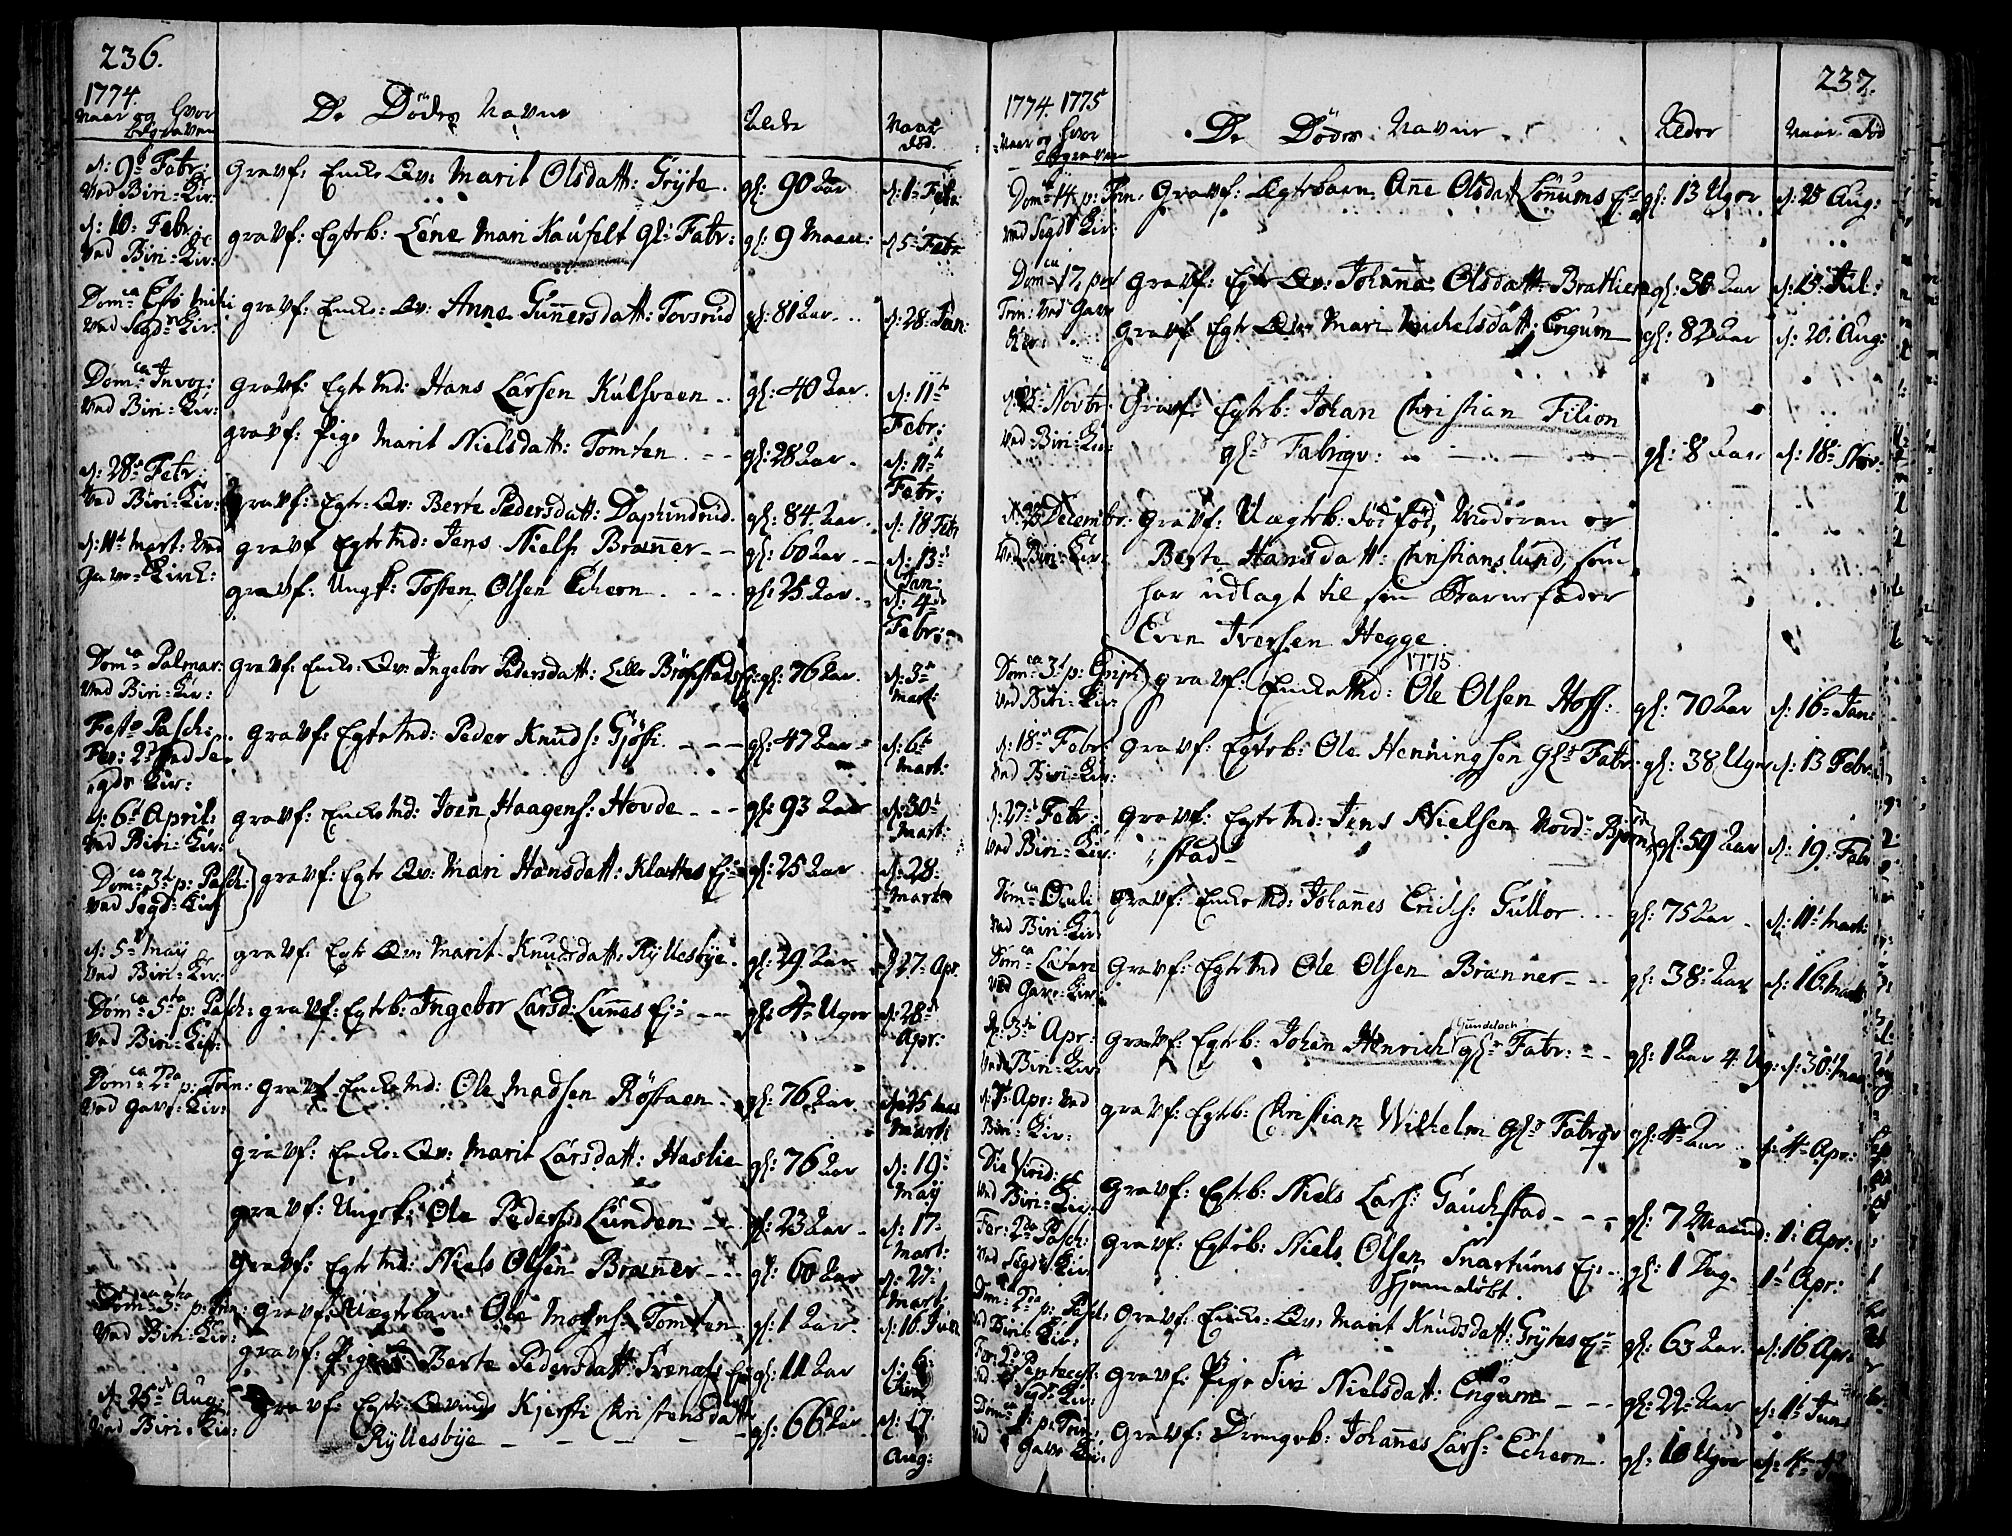 236.
1774.
Naar og hvor begraven
De Dödes Navne
Alder
Naar död.
d: 9de Febr: Ved Biri-Kir:
gravf: Enke Qv: Marit Olsdatt: Gryte
gl: 90 Aar
d: 1 Febr:
d: 10: Febr: Ved Biri-Kir:
gravf: Egteb: Lene Mari Kaufelt Gl: Fabr:
gl: 9 Maan:
d 5 Febr
Dom: Esto mihi Ved Segd: Kir:
gravf: Enke: Qv: Anne Gunnersdatt: Tovsrud
gl: 81 Aar
d: 28: Jan:
Dom: Invoc: Ved Biri-Kir:
gravf: Egte Md: Hans Larsen Kulsveen
gl: 40 Aar.
d: 11te Febr:
gravf: Pige Marit Nielsdatt: Tomten
gl: 28 Aar
d: 11te Febr:
d: 28de Febr: Ved Biri-Kir:
gravf: Egte: Qv: Berte Pedersdatt:
gl: 84 Aar
d: 18 Febr
d: 11te Mart: Ved Gavr-Kirck:
gravf Egte Md: Jens Niels: Brænner
gl: 60 Aar
d: 13: Jan:
gravf: Ungk: Tosten Olsen Echern
gl: 25 Aar
d: 4de Febr:
Dom: Palmar: Ved Biri-Kir:
gravf: Enke: Qv: Ingebor Pedersdatt: Lille
gl: 76 Aar
d: 3de Mart:
Festo Pasch: Fer: 2d Ved Segds Kir:
gravf: Egte Md: Peder Knuds: Gjöst
gl: 47 Aar
d: 6te Mart:
d: 6te April: Ved Biri-Kir:
gravf: Enke Md: Joen Haagens: Hovde
gl: 93 Aar
d: 30te Mart:
Dom: 3d p: Pasch: Ved Segd: Kir
gravf: Egte Qv: Mari Hansdatt: Klattes Ej:
gl: 25 Aar
d: 28: Martz
d: 5te May Ved Biri-Kir:
gravf: Egte Qv: Marit Knudsdatt: Ryllesbye
gl: 29 Aar
d 27 Apr.
Dom: 5ta p: Pasch: Ved Biri-Kir:
gravf: Egteb: Ingebor Larsd: Lunnes Ej:
gl: 4 Uger
d: 28de Apr:
Dom: 2da p: Trin: Ved Gavr: Kir:
gravf: Enke Md: Ole Madsen Röstaen
gl: 76 Aar
d: 25 Marti
gravf: Enke: Qv: Marit Larsdatt: Haslie
gl: 76 Aar
d: 19: May
gravf: Ungk: Ole Peders: Lunden
gl: 23 Aar
d: 17 Mart:
gravf: Egte Md: Niels Olsen Brænner
gl: 60 Aar
d: 27: Mart:
Dom: p: Trin: Ved Biri-Kir:
gravf: Uægtebarn Ole Mogns: Tomten
gl: 1 Aar.
d: 16: Jun
gravf: Pige Berte Pedersdatt:
gl: 11 Aar
d: 6:
d: 25de Aug: Ved Biri-Kir:
gravf: Egte: Qvinde Kjersti Christensdatt: Ryllesbye
gl: 66 Aar
d: 17: Aug:
237.
1774. 1775
Naar og hvor begraven
De Dödes Navne
Alder
Naar Död
Dom: 14 p: Trin: Ved Segds Kir:
Gravf: Ægtebarn Anne Olsdatt Lönnums Ej:
gl: 13 Uger
d: 25 Aug:
Dom: 17 post Trin: Ved Gavr Kir:
gravf: Egte Qv: Johanna Olsdatt: Brathien
gl: 36 Aar
d: 15: Jul:
gravf Egte Qv: Mari Michelsdatt: Engum
gl: 82 Aar
d: 20: Aug:
Novbr: Ved Biri-Kir:
Gravf: Egteb: Johan Christian Filion
glds Fabriqv:
gl: 8 Aar
d: 18: Nov:
d: Decembr: Ved Biri-Kir:
gravf: Uægteb: Födt död, Moderen er
Berte Hansdatt: Christianslund, som
har udlagt til sin Barnefader
Even Iversen Hegge
1775
Dom: 3d p: Epiph: Ved Biri-Kir:
gravf: Enke Md: Ole Olsen Hoff:
gl: 70 Aar
d: 16 Jan:
d: 18 Febr: Ved Biri-Kir:
gravf: Egteb: Ole Henningsen Gls Fabr:
gl: 38 Uger
d: 13 Febr:
d: 27: Febr: Ved Biri-Kir:
gravf: Egte Md: Jens Nielsen Nord-Björnstad
gl: 59 Aar
d: 19: Febr
Dom: Oculi Ved Biri-Kir
gravf: Enke Md: Johannes Erichs: Gullor
gl: 75 Aar
d: 11te Mart:
Dom: Lætare Ved Gavr-Kir:
gravf: Egte Md Ole Olsen Brænner
gl: 38: Aar
d: 16: Mart:
d: 3die Apr: Ved Biri-Kir:
Gundelach
gravf: Egteb: Johan Henrich gls Fabr:
gl: 1 Aar 4 Ug:
d: 30te Mar
Apr: Ved Biri: Kir:
gravf: Egteb: Christian Wilhelm Gls Fabrqv
gl: Aar
d: 4 Apr:
Die Virid: Ved Biri-Kir:
gravf: Egteb: Niels Lars: Gauckstad
gl: 7 Maaned:
1 Apr:
Fer: 2da Pasch: Ved Segds Kir
gravf: Egteb: Niels Olsen Snartums Ej:
hjemmedöbt.
gl: 1 Dag
1 Apr:
Dom: 2da p: Pasch: Ved Biri-Kir:
gravf: Enke: Qv: Marit Knudsdatt: Grytes Ej:
gl: 63 Aar
d: 16 Apr:
Fer: 2d Pentecost: Ved Segds Kir:
gravf: Pige Siri Nielsdatt: Engum
gl: 22 Aar
d: 1 Juni
Dom: p: Trin: Ved Gavr Kir:
gravf: Drengeb: Johannes Lars: Echern
gl: 10 Uger